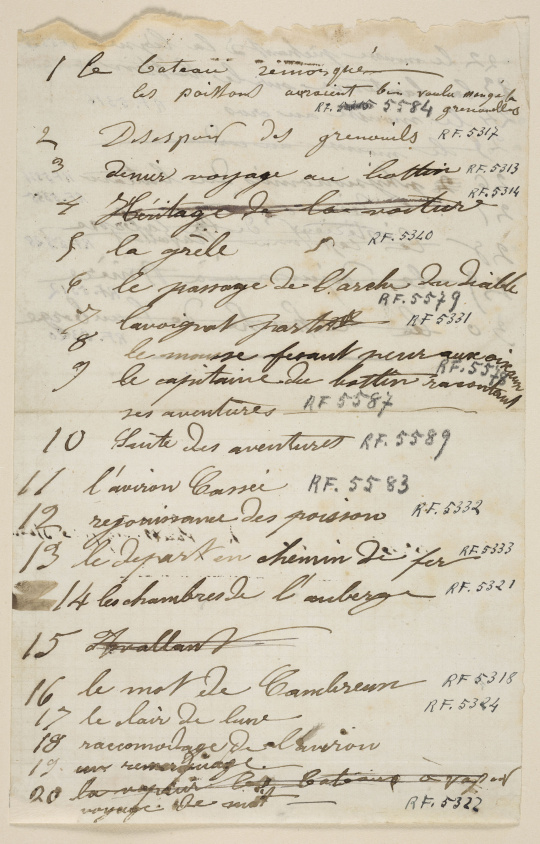 1 le bateau remorqué
les poissons auraient bien voulu
RF. 5584 grenouilles
2 Desespoir des grenouils RF. 5317
3 dernier voyage au bottin RF. 5313
RF. 5314
4 Héritage de la voiture
5 la grêle RF. 5340
6 le passage de l'arche du diable
RF. 5579
7 lavoignat part RF 5331
8 le mousse fesant peur aux oiseaux
9 le capitaine du bottin racontant
ses aventures RF 5587
10 Suite des aventures RF. 5589
11 l'aviron Cassé RF. 5583
12 rejouissance des poisson RF. 5332
13 le depart en chemin de fer RF. 5333
14 les chambres de l'auberge RF. 5321
15 Avallant
16 le mot de Cambronn RF 5318
17 le clair de lune RF. 5324
18 raccomodage de l'aviron
19
20 la vapeur les bateaux a vapeur
voyage de RF. 5322